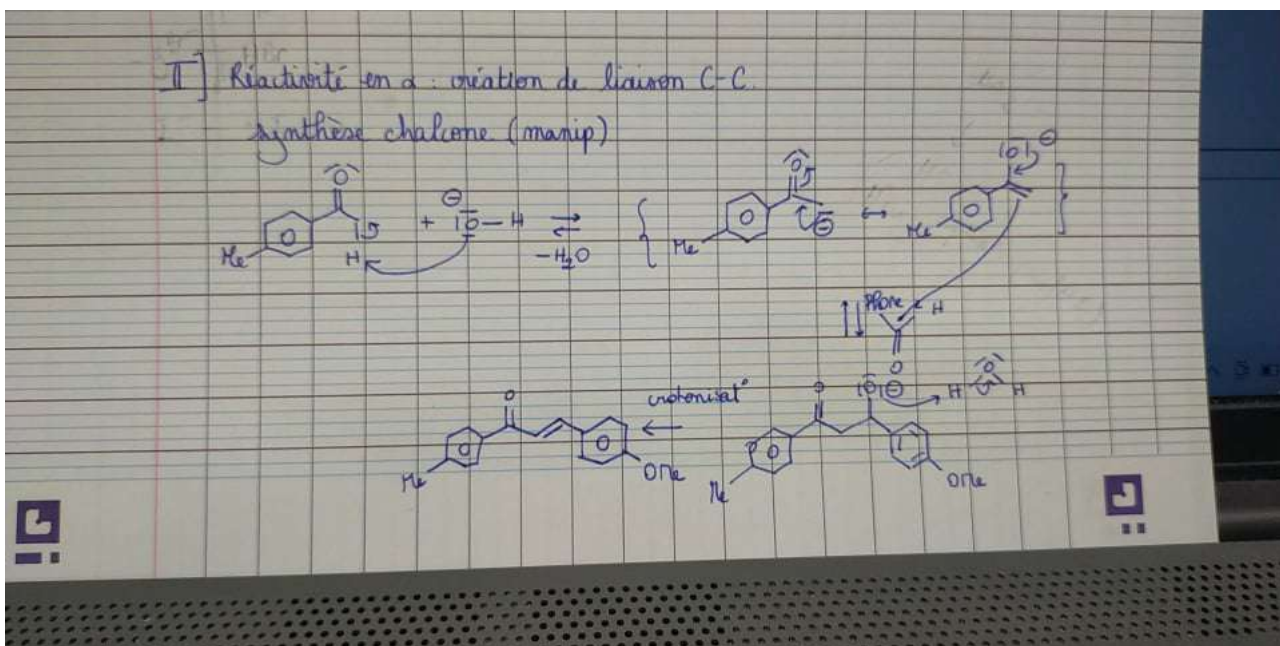 II] Réactivité en α : création de liaison C-C.
synthèse chalcone (manip)
O
+ ⊖ |O-H ⇌ -H2O
Me
H
O
⊖
Me
↔
|O| ⊖
Me
H
O
O
|O| ⊖
H O H
crotonisat°
←
O
Me
OMe
Me
OMe